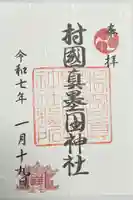 奉拝
村國真墨田神社
令和七年 一月十九日